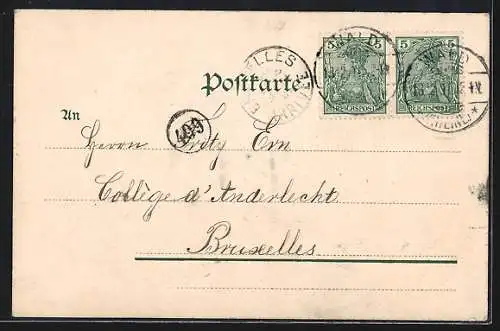 5 5
REICHSPOST REICHSPOST
WALD WALD
Postkarte
An
409
Herrn Fritz Ern
Collège d'Anderlecht
Bruxelles